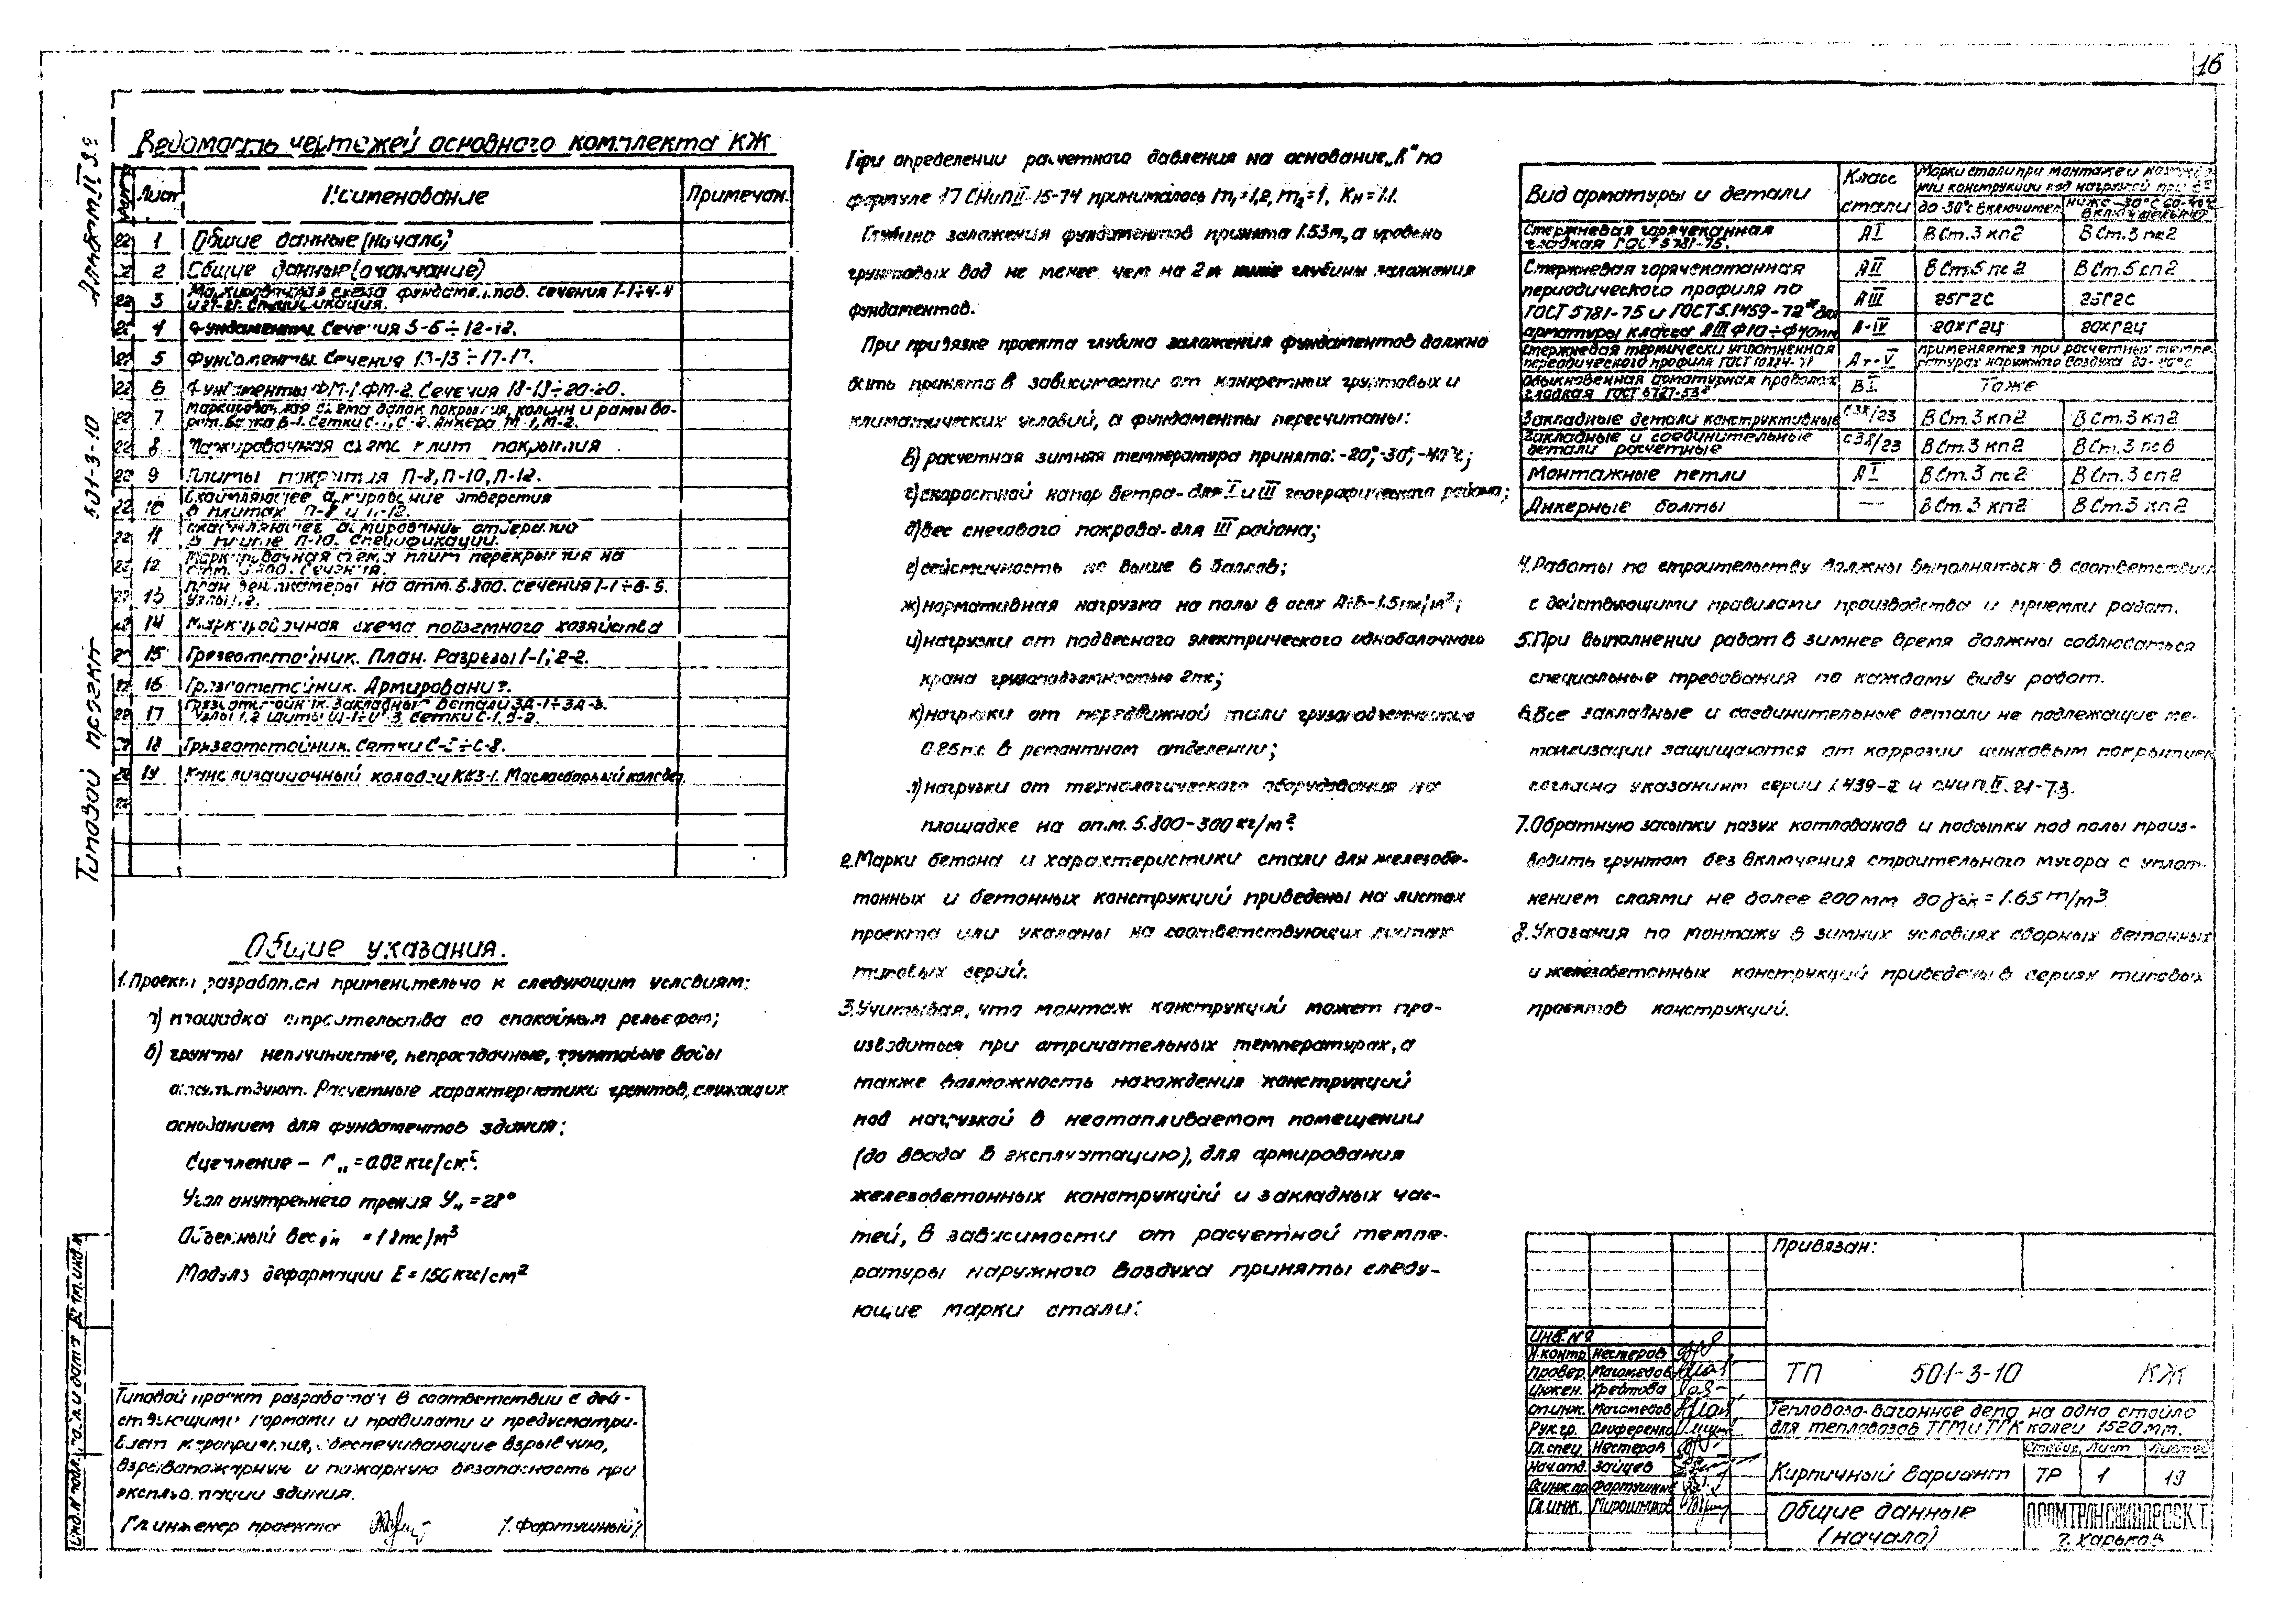 16
Альбом II
501-3-10
Типовой проект
Ведомость чертежей основного комплекта КЖ
Лист Наименование Примечан.
22 1 Общие данные (начало)
22 2 Общие данные (окончание)
22 3 Маркировочная схема фундаментов. Сечения 1-1÷4-4
Спецификация.
22 4 Фундаменты. Сечения 5-5÷12-12.
22 5 Фундаменты. Сечения 13-13÷17-17.
22 6 Фундаменты ФМ-1, ФМ-2. Сечения 18-18÷20-20.
22 7 Маркировочная схема балок покрытия, колонн и рамы во-
рот. Балка Б-1. Сетки С-1, С-2. Анкера М-1, М-2.
22 8 Маркировочная схема плит покрытия
22 9 Плиты покрытия П-8, П-10, П-12.
22 10 Окаймляющее армирование отверстия
в плитах П-8 и П-12.
22 11 Окаймляющее армирование отверстия
в плите П-10. Спецификации.
22 12 Маркировочная схема плит перекрытия на
отм. Сечения.
22 13 План венткамеры на отм. 5.800. Сечения 1-1÷6-5.
Узлы 1,2.
22 14 Маркировочная схема подземного хозяйства
22 15 Грязеотстойник. План. Разрезы 1-1; 2-2.
22 16 Грязеотстойник. Армирование.
22 17 Грязеотстойник. Закладные детали ЗД-1÷ЗД-3.
Узлы 1,2 Щиты Сетки С-1, С-2.
22 18 Грязеотстойник. Сетки С-3÷С-8.
22 19 Канализационный колодец ККЗ-1. Маслосборный колодец.
22
Общие указания.
1. Проект разработан применительно к следующим условиям:
а) площадка строительства со спокойным рельефом;
б) грунты непучинистые, непросадочные, грунтовые воды
отсутствуют. Расчетные характеристики грунтов, служащих
основанием для фундаментов здания:
Сцепление – = 0.02 кгс/см².
Угол внутреннего трения = 28°
Объемный вес = 1.8 тс/м³
Модуль деформации Е = 150 кгс/см²
Типовой проект разработан в соответствии с дей-
ствующими нормами и правилами и предусматри-
вает мероприятия, обеспечивающие взрывную,
взрывопожарную и пожарную безопасность при
эксплуатации здания.
Гл. инженер проекта /Фартушный/
При определении расчетного давления на основание „R“ по
формуле 17 СНиП II-15-74 принималось m₁=1,2, m₂=1, Kн=1.1.
Глубина заложения фундаментов принята 1.53 м, а уровень
грунтовых вод не менее чем на 2 м ниже глубины заложения
фундаментов.
При привязке проекта глубина заложения фундаментов должна
быть принята в зависимости от конкретных грунтовых и
климатических условий, а фундаменты пересчитаны:
в) расчетная зимняя температура принята: -20°, -30°, -40°с;
г) скоростной напор ветра - для I и III географического района;
д) вес снегового покрова - для III района;
е) сейсмичность не выше 6 баллов;
ж) нормативная нагрузка на полы в осях А÷Б – 1.5 тс/м²;
и) нагрузки от подвесного электрического однобалочного
крана грузоподъемностью 2тс;
к) нагрузки от передвижной тали грузоподъемностью
0.25 тс в ремонтном отделении;
л) нагрузки от технологического оборудования на
площадке на отм. 5.800 – 300 кг/м².
2. Марки бетона и характеристики стали для железобе-
тонных и бетонных конструкций приведены на листах
проекта или указаны на соответствующих листах
типовых серий.
3. Учитывая, что монтаж конструкций может про-
изводиться при отрицательных температурах, а
также возможность нахождения конструкций
под нагрузкой в неотапливаемом помещении
(до ввода в эксплуатацию), для армирования
железобетонных конструкций и закладных час-
тей, в зависимости от расчетной темпе-
ратуры наружного воздуха приняты следу-
ющие марки стали:
Вид арматуры и детали Класс стали Марки стали при монтаже и нахожде-
нии конструкции под нагрузкой при t°
до -30°с включител. ниже -30°с до -40°с включительно
Стержневая горячекатанная
гладкая ГОСТ 5781-75. АI ВСт.3 кп2 ВСт.3 пс2
Стержневая горячекатанная АII ВСт.5 пс2 ВСт.5 сп2
периодического профиля по АIII 25Г2С 25Г2С
ГОСТ 5781-75 и ГОСТ 5.1459-72* для
арматуры класса АIII Ф10÷Ф40мм А-IV 20ХГ2Ц 20ХГ2Ц
Стержневая термически уплотненная
периодического профиля ГОСТ 10884-71 Ат-V применяется при расчетных темпе-
ратурах наружного воздуха до -40°с
Обыкновенная арматурная проволока
гладкая ГОСТ 6727-53* ВI Тоже
Закладные детали конструктивные С38/23 ВСт.3 кп2 ВСт.3 кп2
Закладные и соединительные
детали расчетные С38/23 ВСт.3 кп2 ВСт.3 пс6
Монтажные петли АI ВСт.3 пс2 ВСт.3 сп2
Анкерные болты — ВСт.3 кп2 ВСт.3 кп2
4. Работы по строительству должны выполняться в соответствии
с действующими правилами производства и приемки работ.
5. При выполнении работ в зимнее время должны соблюдаться
специальные требования по каждому виду работ.
6. Все закладные и соединительные детали не подлежащие ме-
таллизации защищаются от коррозии цинковым покрытием
согласно указаниям серии 1.439-2 и СНиП II.21-73.
7. Обратную засыпку пазух котлованов и подсыпку под полы произ-
водить грунтом без включения строительного мусора с уплот-
нением слоями не более 200 мм до γск = 1.65 т/м³
8. Указания по монтажу в зимних условиях сборных бетонных
и железобетонных конструкций приведены в сериях типовых
проектов конструкций.
Привязан:
Инв. №
Н.контр. Нестеров
Провер. Магомедов
Инжен. Хребтова
Ст.инж. Магомедов
Рук.гр. Олиференко
Гл.спец. Нестеров
Нач.отд. Зайцев
Гл.инж.пр. Фартушный
Гл.инж. Мирошников
ТП 501-3-10 КЖ
Тепловозо-вагонное депо на одно стойло
для тепловозов ТГМ и ТГК колеи 1520 мм.
Кирпичный вариант
Стадия Лист Листов
ТР 1 19
Общие данные
(начало)
ПРОМТРАНСНИИПРОЕКТ
г. Харьков
Инв. № подл. Подп. и дата Вз. инв. №